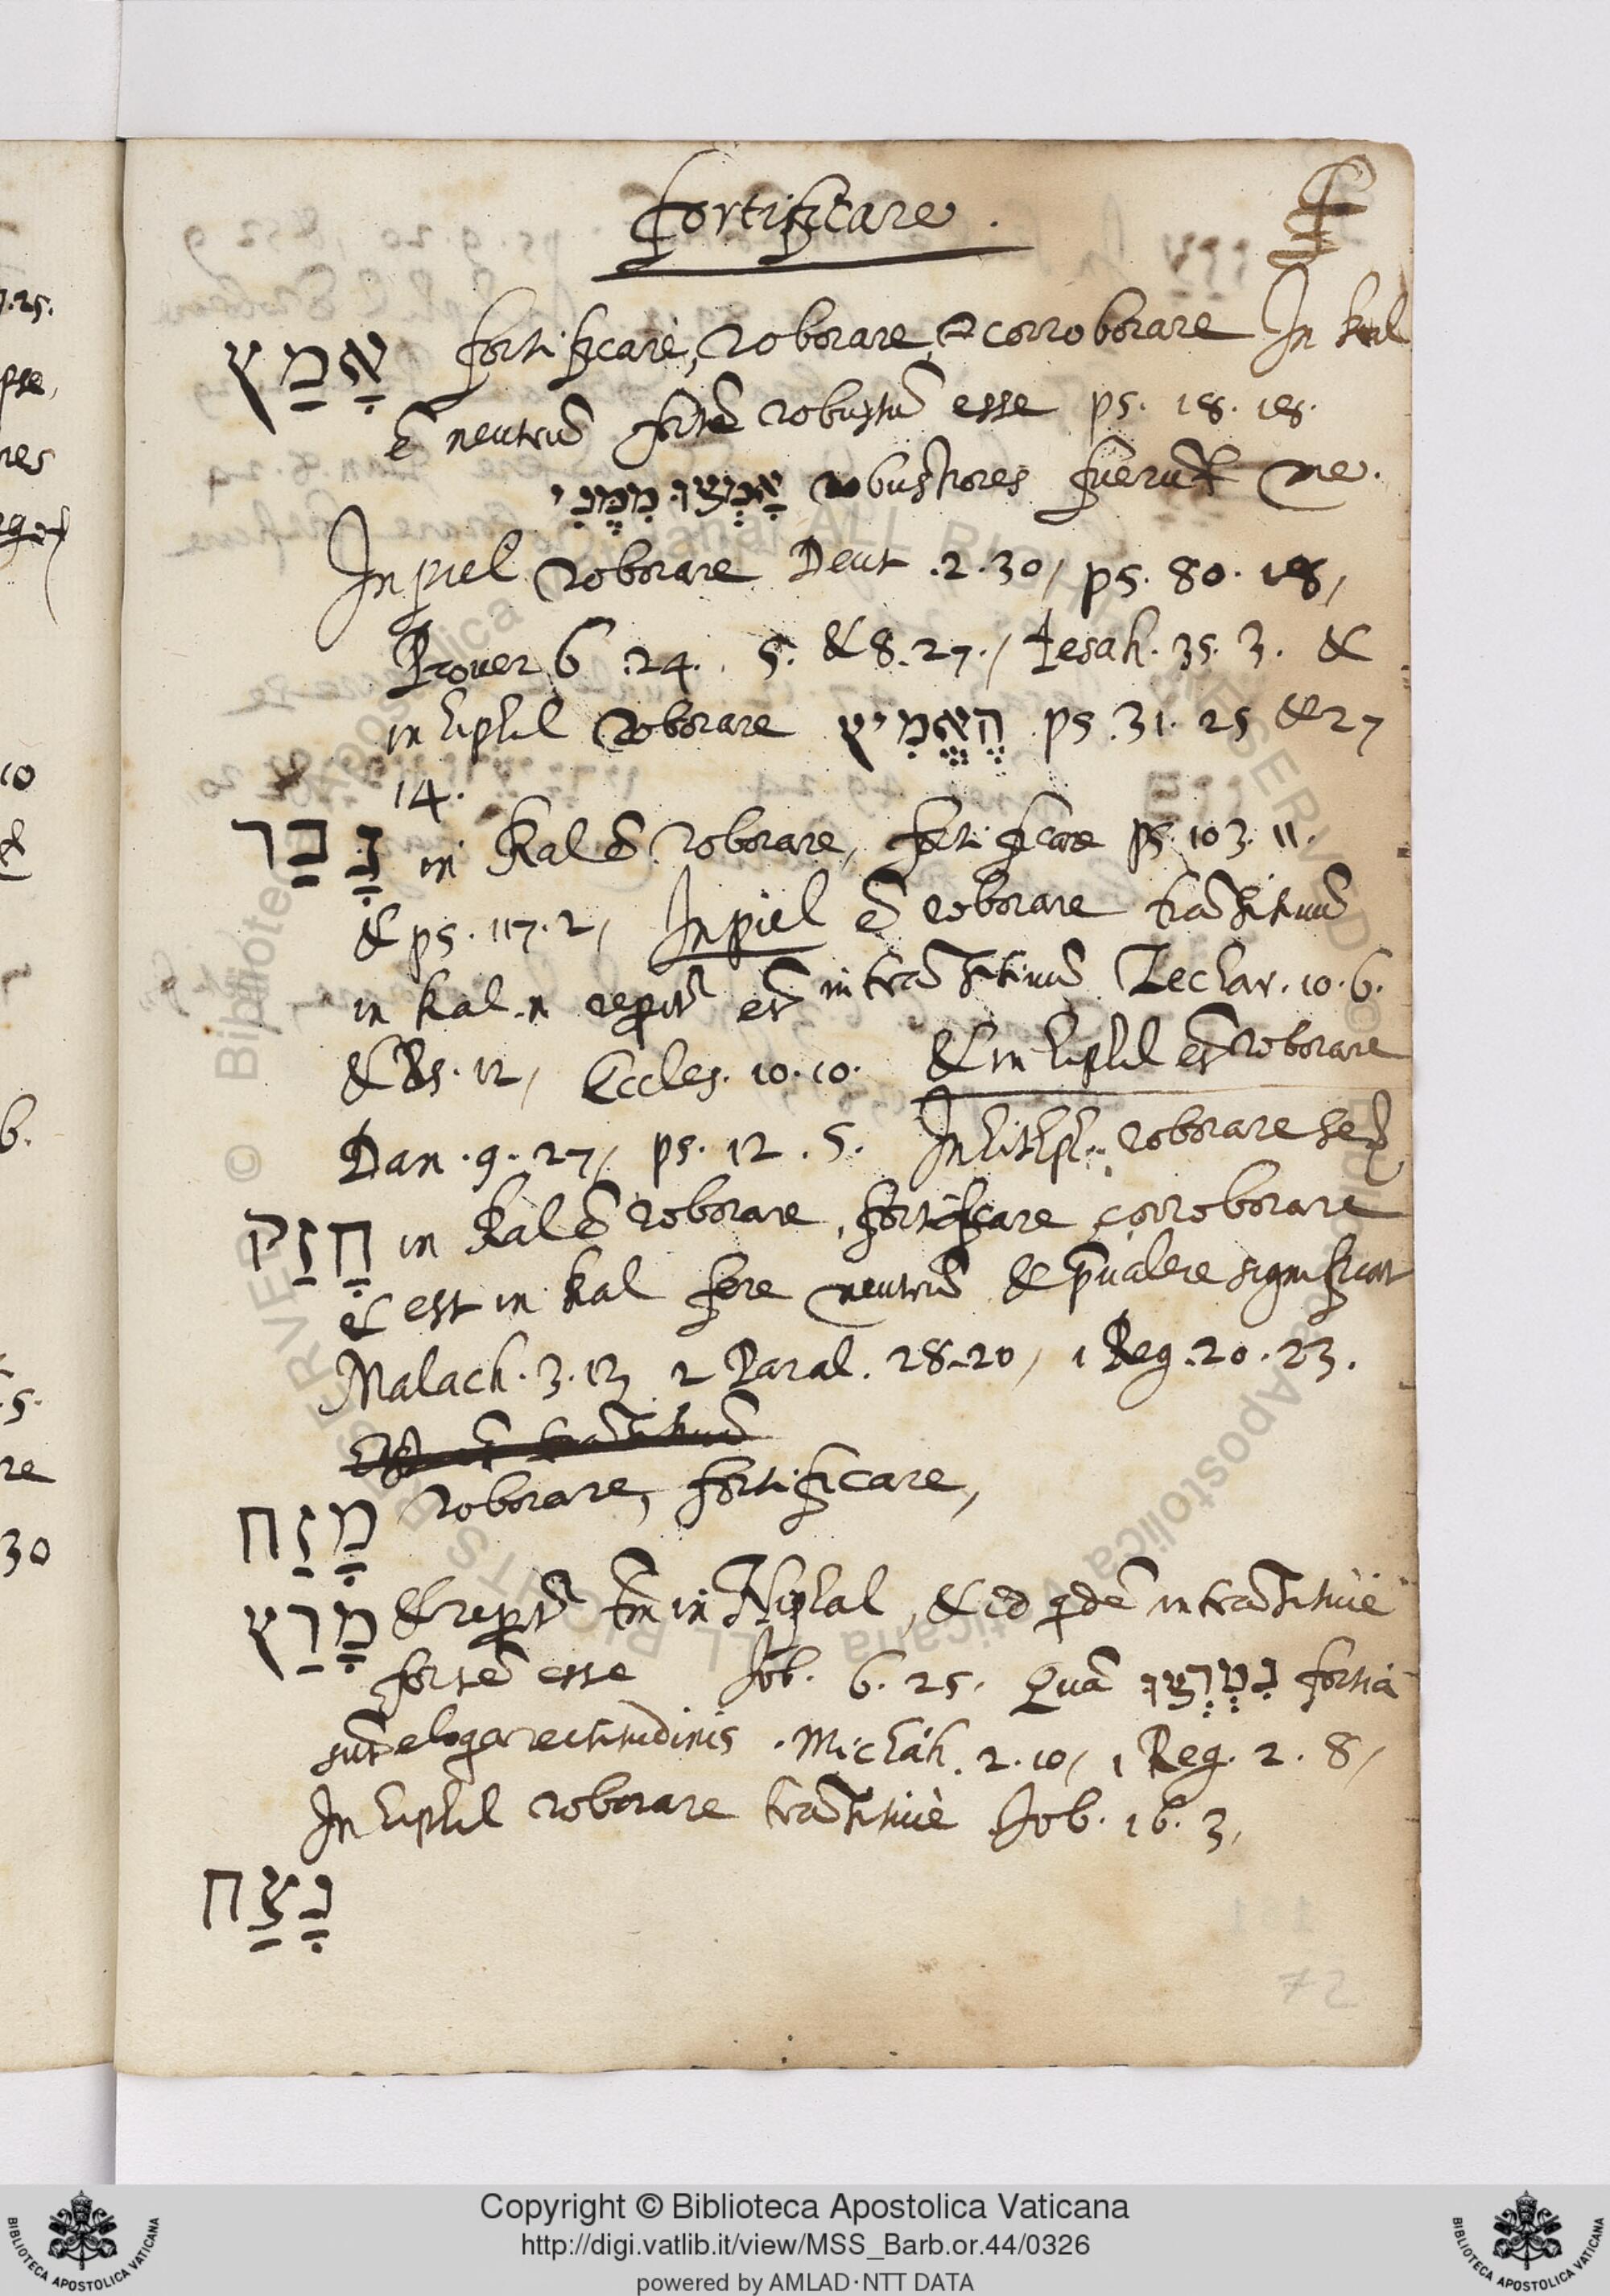 fortificare.
אָמַץ fortificare, roborare, & corroborare In kal
ē neutrū fortē robustū esse ps. 18. 18.
אָמְצוּ מִמֶּנִּי robustiores fuerūt me.
In piel roborare Deut. 2. 30, ps. 80. 18,
Prouerb. 24. 5. & 8. 27., Iesah. 35. 3. &
in hiphil roborare הֶאֱמִיץ ps. 31. 25 & 27
14.
גָּבַר in Kal ē roborare, fortificare ps. 103. 11.
& ps. 117. 2, In piel ē roborare trāsitiuū
in kal n reperit̄ et̄ intrāsitiuū Zechar. 10. 6.
& 12, Eccles. 10. 10. & in hiphil et̄ roborare
Dan. 9. 27, ps. 12. 5. In hithp. roborare se
חָזַק in Kal ē roborare, fortificare, corroborare
& est in kal fere neutrū & p̄ualere significat
Malach. 3. 13 2 Paral. 28. 20, 1 Reg. 20. 23.
מָזַח roborare, fortificare,
מָרַץ & reperit̄ tm̄ in Niphal, & id qdē intrāsitiuè
fortē esse Job. 6. 25. Quā נִמְרְצוּ fortia
sūt eloqa rectitudinis. Michàh. 2. 10, 1 Reg. 2. 8,
In hiphil roborare trāsitiuè Job. 16. 3,
נָצַח
Copyright © Biblioteca Apostolica Vaticana
http://digi.vatlib.it/view/MSS_Barb.or.44/0326
powered by AMLAD·NTT DATA